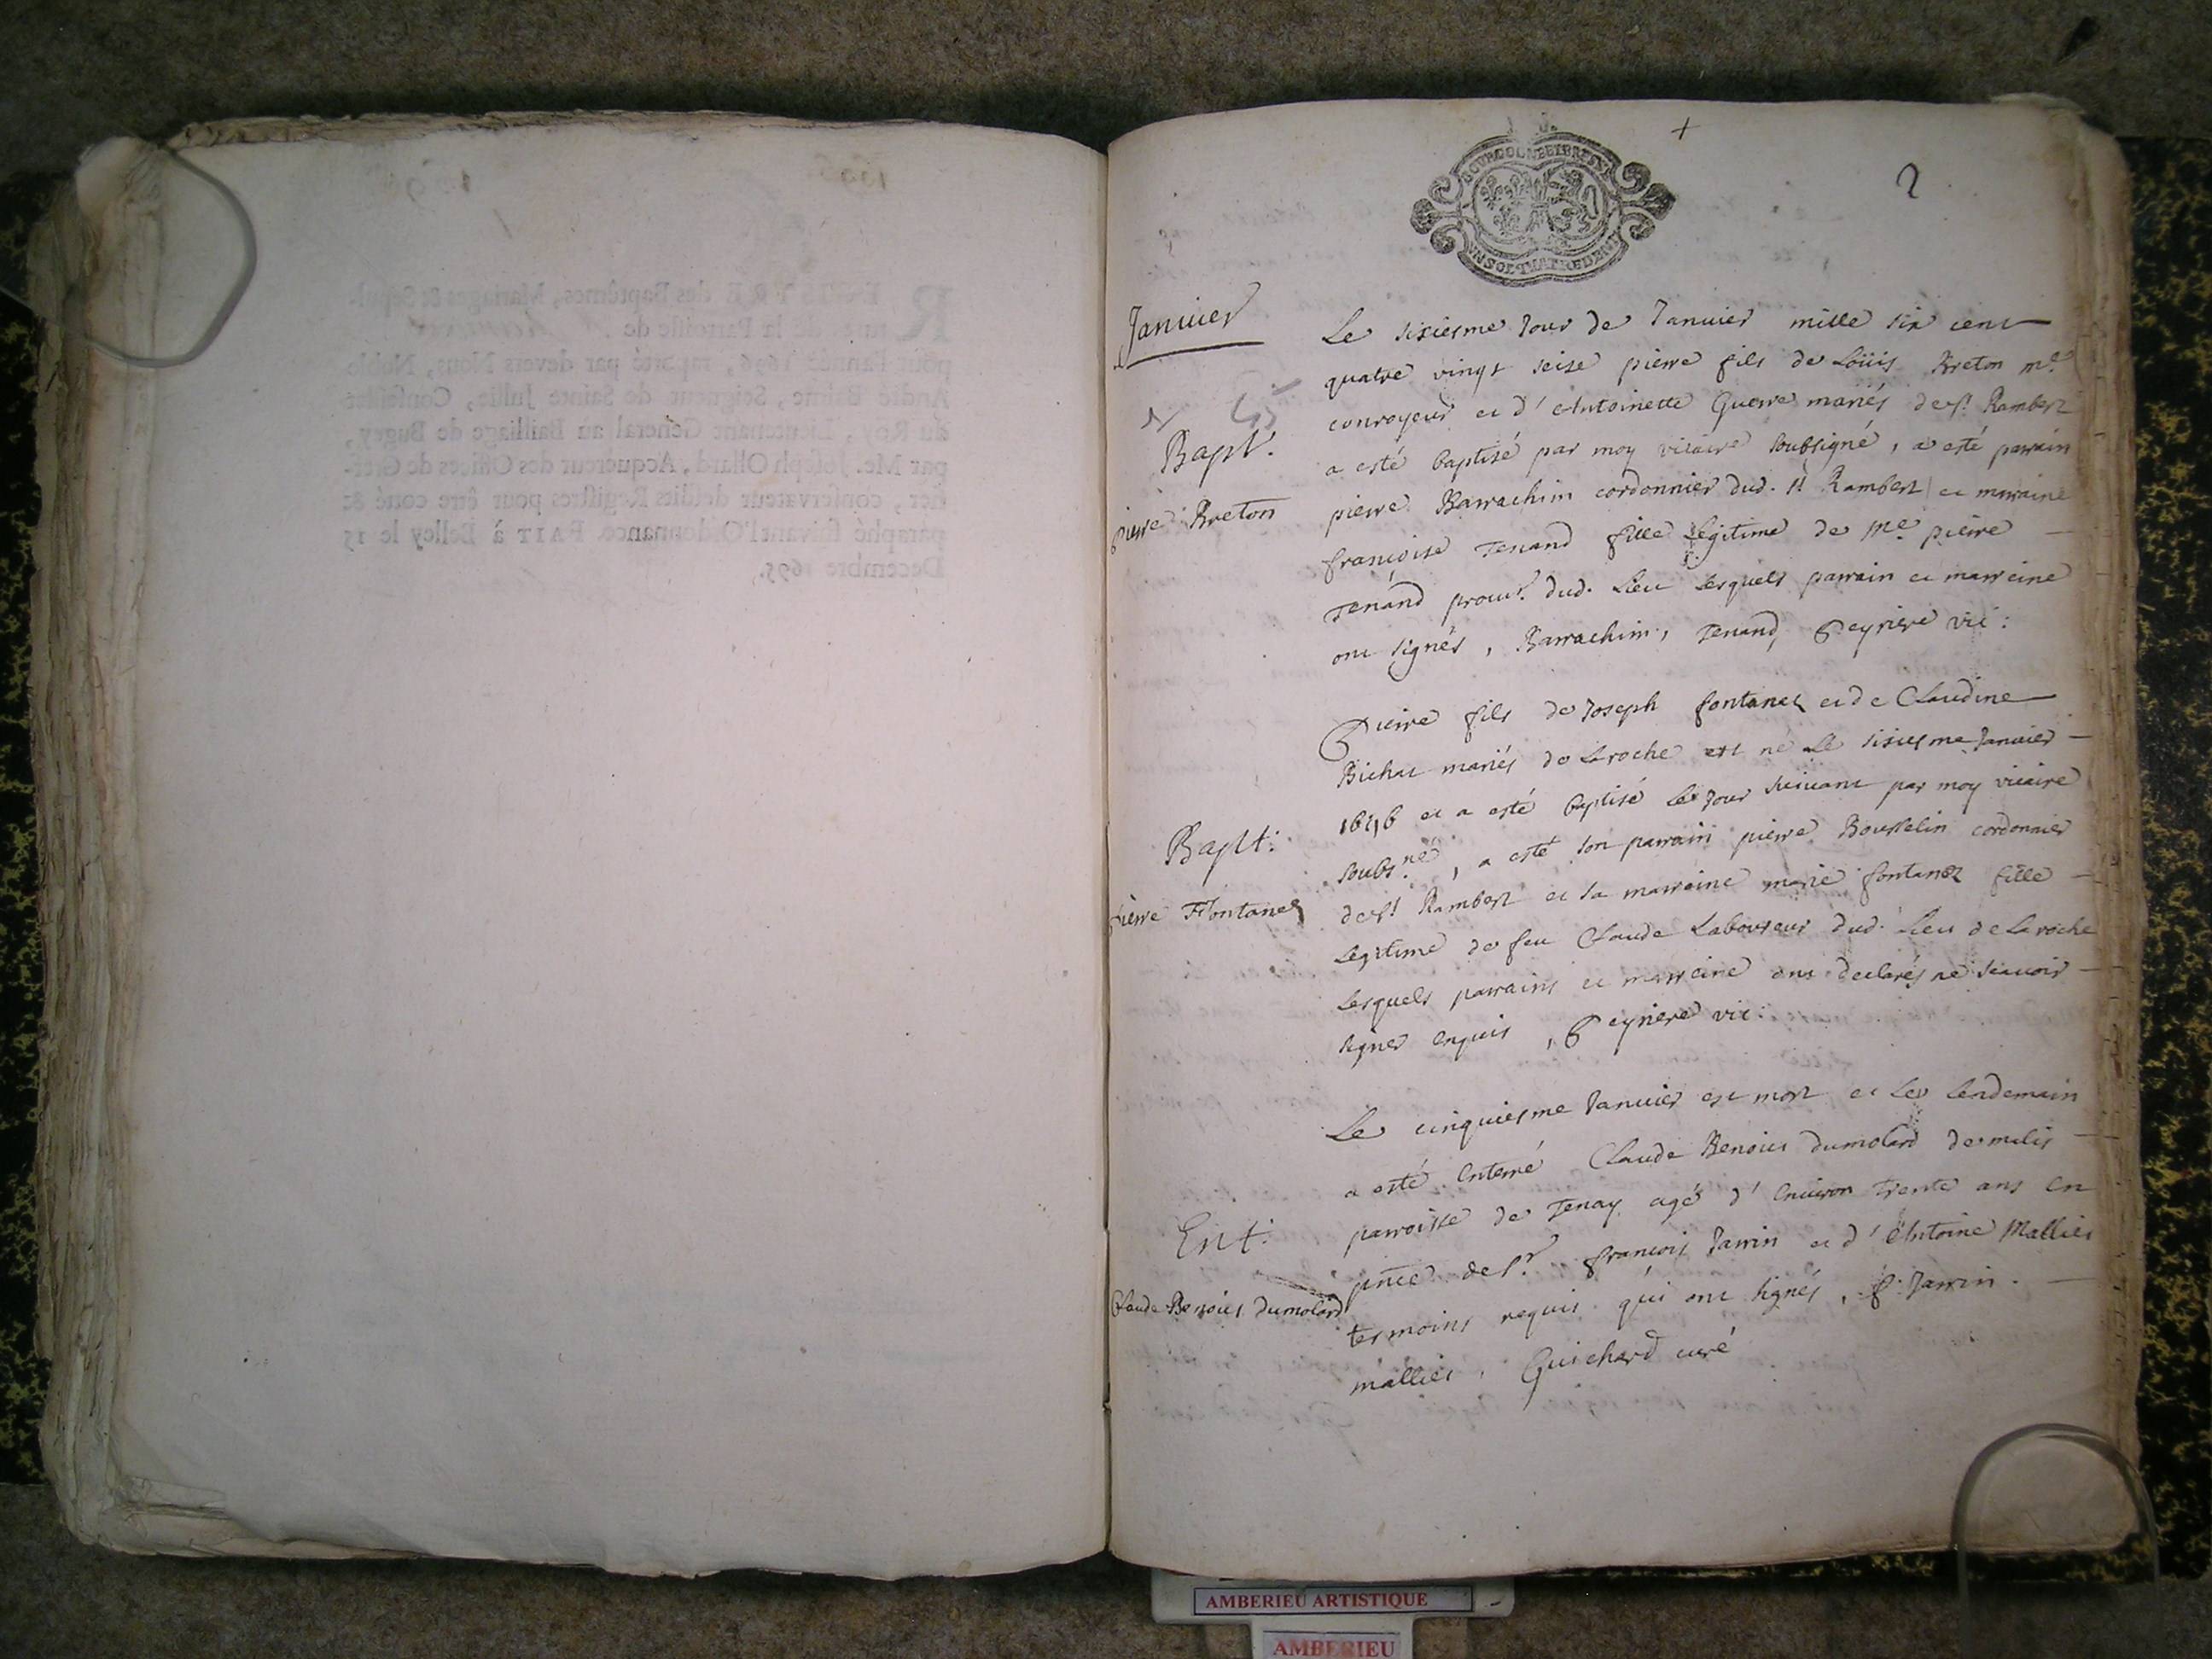 2
BOURGOGNE ET BRESSE
UN SOL QUATRE DEN
Januier
Le sixiesme Jour de Januier mille six cent
quatre vingt seize pierre fils de Loüis Breton me.
conroyeur et d'Antoinette Guerre mariés de St. Rambert
Bapt.
a esté baptisé par moy vicaire soubsigné, a esté parrain
pierre Breton
pierre Barrachin cordonnier dud. St Rambert et marraine
françoise Tenand fille Legitime de Me. pierre
Tenand procur. dud. Lieu Lesquels parrain et marreine
ont signés, Barrachin, Tenand, Peyriere vic:
Pierre fils de Joseph fontanel et de Claudine
Bichat mariés de Laroche est né Le sixiesme Januier
1696 et a esté baptisé Le Jour suiuant par moy vicaire
Bapt:
soubs.né, a esté son parrain pierre Bousselin cordonnier
pierre Fontanel
de St Rambert et sa marraine marie fontanel fille
Legitime de feu Claude Laboureur dud. Lieu de Laroche
Lesquels parrains et marreine ont declarés ne scauoir
signer enquis, Peyriere vic:
Le cinquiesme Januier est mort et Le Lendemain
a esté Enterré Claude Benoict dumolard de malis
Ent:
parroisse de Tenay agé d'Enuiron Trente ans En
pnce de Sr. françois Jarrin et d'Antoine Mallier
Claude Benoict Dumolard
tesmoins requis qui ont signés, f. Jarrin.
mallier, Guichard curé
REGISTRE des Baptêmes, Mariages & Sepul-
ture de la Parroisse de St Rambert
pour l'année 1696, raporté par devers Nous, Noble
André Balme, Seigneur de Sainte Jullie, Conseiller
du Roy, Lieutenant General au Bailliage de Bugey,
par Me. Joseph Ollard, Acquereur des Offices de Gref-
fier, conservateur desdits Registres pour être coté &
paraphé suivant l'Ordonnance. FAIT à Belley le 15
Decembre 1695.
AMBERIEU ARTISTIQUE
AMBERIEU